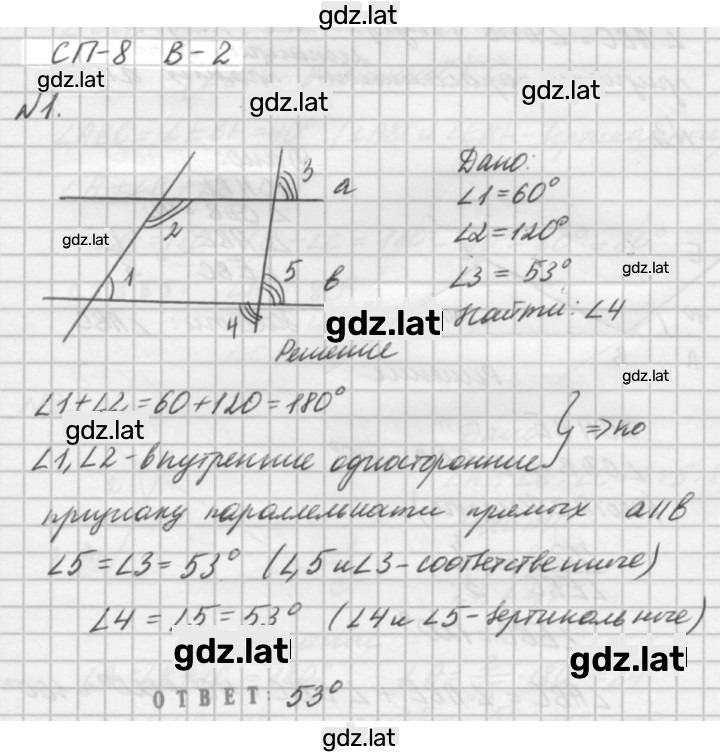 gdz.lat
СП-8 В-2
gdz.lat
gdz.lat
gdz.lat
№1.
3 a
2
gdz.lat
1 5 в
4
Дано:
∠1=60°
∠2=120°
∠3 = 53°
gdz.lat
Найти: ∠4
gdz.lat
Решение
gdz.lat
∠1+∠2=60+120=180°
gdz.lat
∠1,∠2-внутренние односторонние } => по
признаку параллельности прямых a||в
∠5=∠3=53° (∠5 и ∠3-соответственные)
∠4=∠5=53° (∠4 и ∠5-вертикальные)
gdz.lat
gdz.lat
ОТВЕТ: 53°
gdz.lat